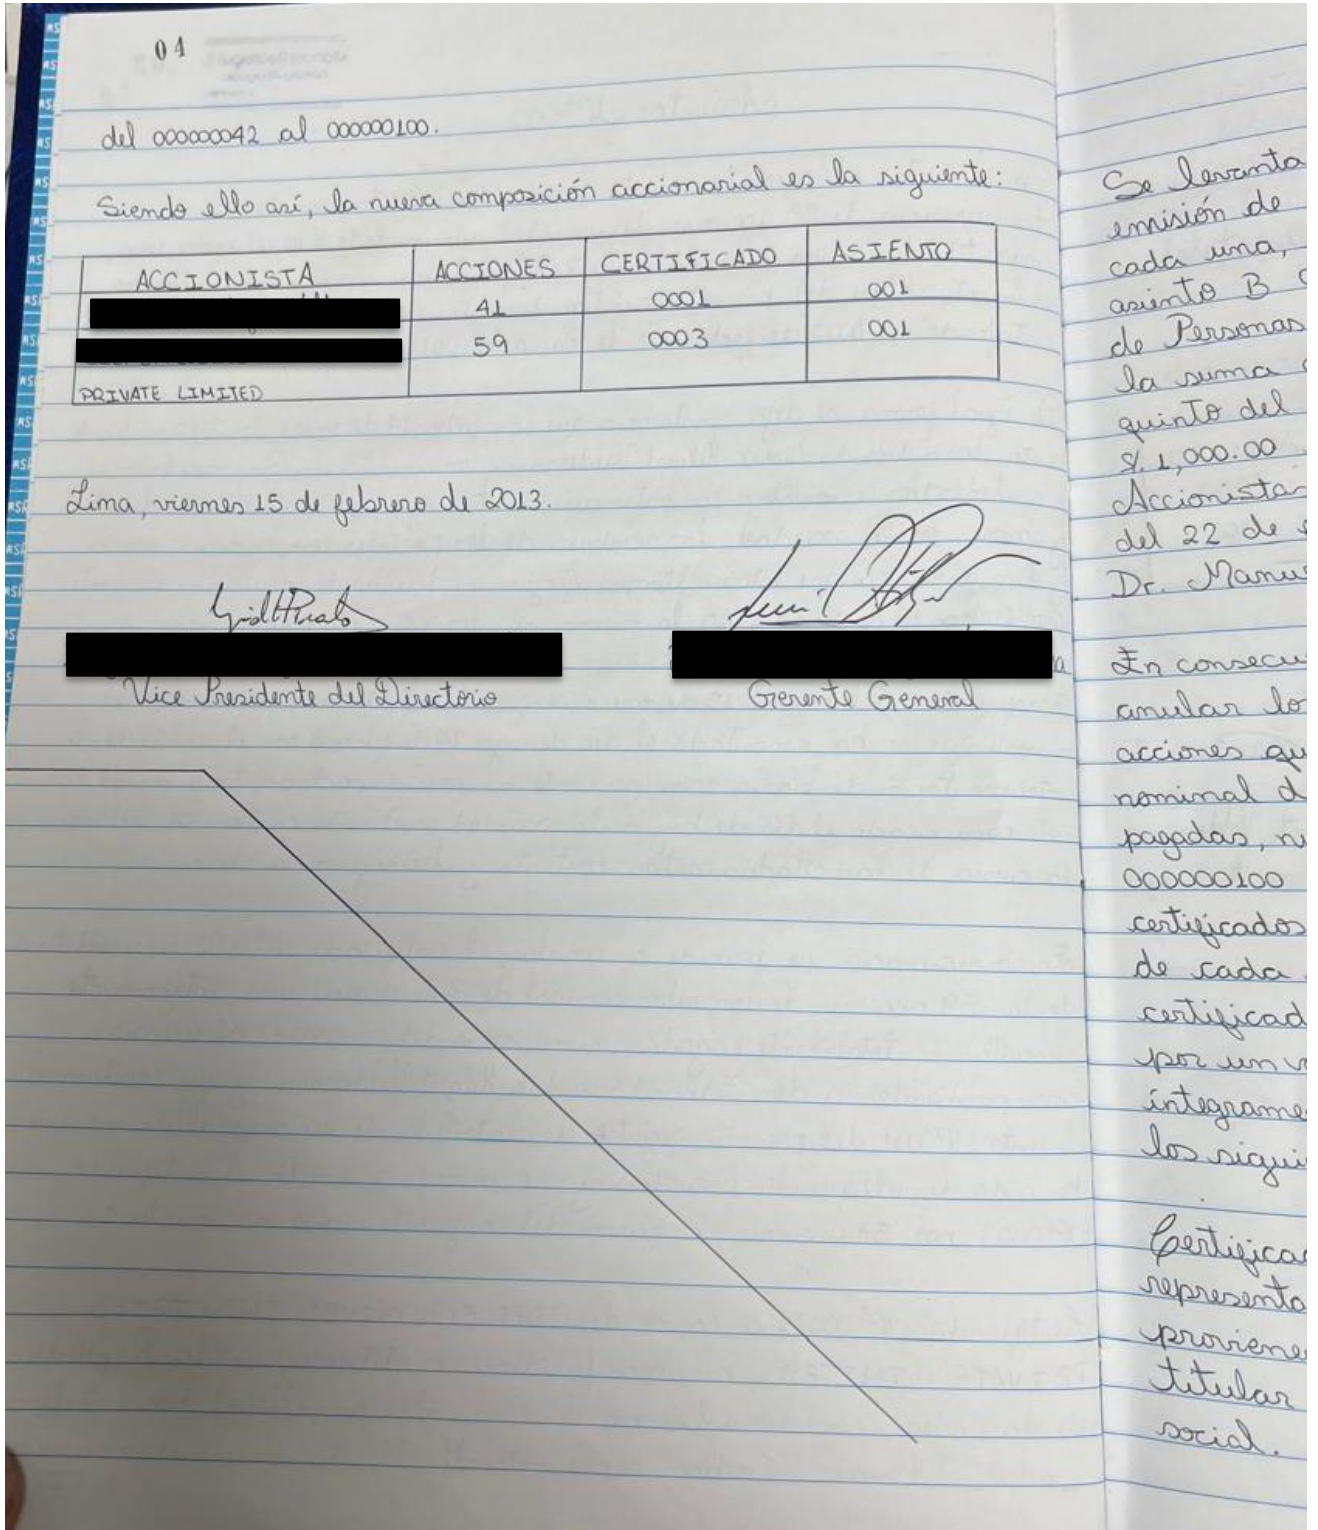 04
del 000000042 al 000000100.
Siendo ello así, la nueva composición accionarial es la siguiente:
ACCIONISTA ACCIONES CERTIFICADO ASIENTO
41 0001 001
59 0003 001
PRIVATE LIMITED
Lima, viernes 15 de febrero de 2013.
Vice Presidente del Directorio Gerente General
Se levanta
emisión de
cada una,
asiento B
de Personas
la suma
quinto del
S/. 1,000.00
Accionista
del 22 de
Dr. Manu
En consecu
anular lo
acciones qu
nominal d
pagadas, nu
000000100
certificados
de cada
certificad
por un v
íntegrame
los sigui
Certifica
representa
proviene
titular
social.